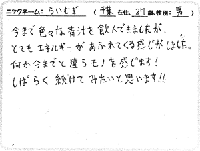 ニックネーム：らいむぎ （千葉 在住、27歳、性別：男 ）
今まで色々な青汁を飲んできましたが
とてもエネルギーがあふれてくる感じがしました。
何か今までと違うモノを感じます！
しばらく続けてみたいと思います！！